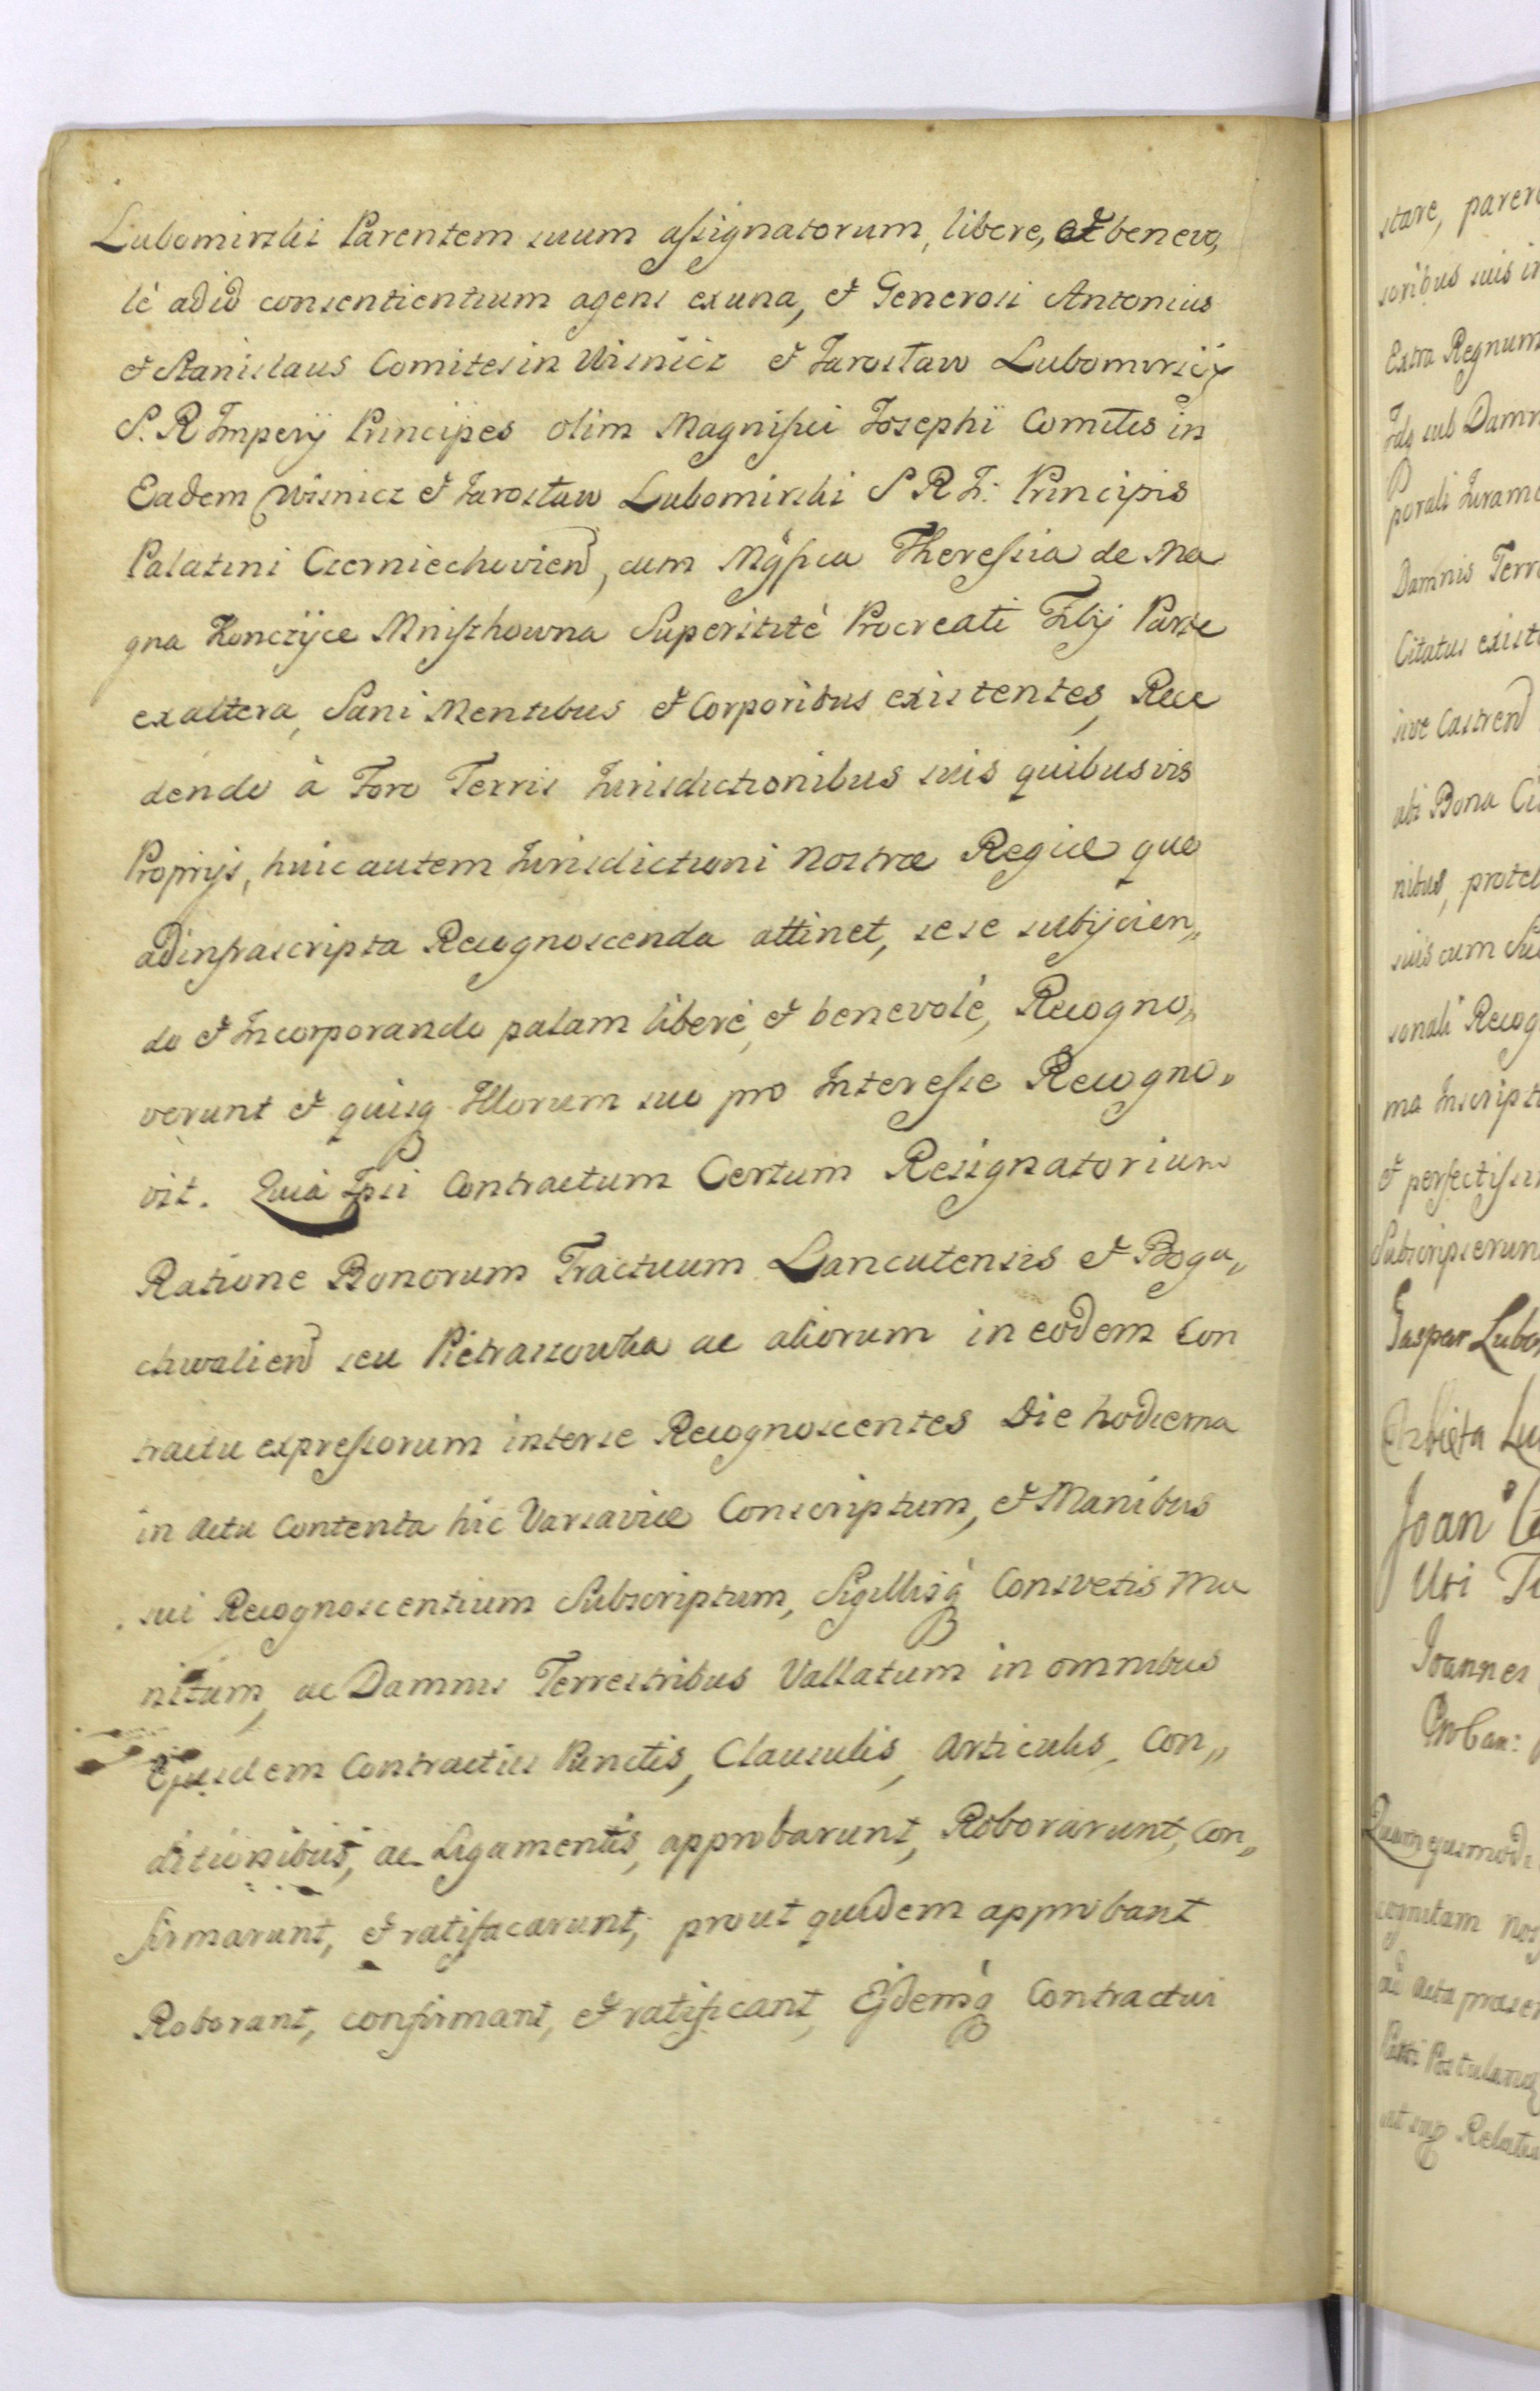 Lubomirski Parentem suum assignatorum, libere, et benevo„
lè adid consentientium agens exuna, et Generosi Antonius
et Stanislaus Comites in Wisnicz et Jarosław Lubomirscÿ
S. R Imperÿ Principes olim Magnifici Josephi Comitis in
Eadem Wisnicz et Jarosław Lubomirski S R I: Principis
Palatini Czerniechovien, cum Mgfica Theressia de Ma
gna Konczÿce Mniszkowna Superstite Procreati Filÿ Parte
exaltera, Sani Mentibus et Corporibus existentes, Rece
dendo à Foro Terris Jurisdictionibus suis quibusvis
Proprÿs, huic autem Jurisdictioni Nostræ Regiæ quo
adinfrascripta Recognoscenda attinet, sese subÿcien„
do et Incorporando palam liberè, et benevolè, Recogno„
verunt et quisq Illorum suo pro Interesse Recogno„
vit. Quià Ipsi Contractum Certum Resignatorium
Ratione Bonorum Tractuum Lancutensis et Bogu„
chwalien seu Pietraszowka ac aliorum in eodem Con
tractu expressorum interse Recognoscentes Die hodierna
in Actu Contenta hic Varsaviæ Conscriptum, et Manibus
sui Recognoscentium Subscriptum, Sigillisq Consvetis Mu
nitum, ac Damnis Terrestribus Vallatum in omnibus
Ejusdem Contractus Punctis, Clausulis, Articulis, Con„
ditionibus, ac Ligamentis, approbarunt, Roborarunt, Con„
firmarunt, et ratificarunt, prout quidem approbant
Roborant, confirmant, et ratificant, Ejdemq Contractui
stare,
soribus suis
Extra Regnum
Idq sub
porali
Damnis
Citatus
sive Castren
ubi Bona
nibus,
suis cum
sonali
ma
et
Gaspar
Joan
Uti
Joannes